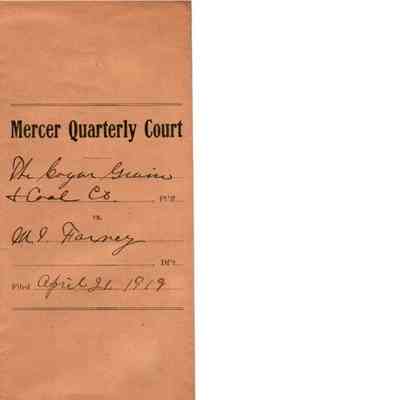 Mercer Quarterly Court
The Cogar Grain
& Coal Co. Pl'ff
vs.
M. I. Farney
Def't
Filed April 21 1919